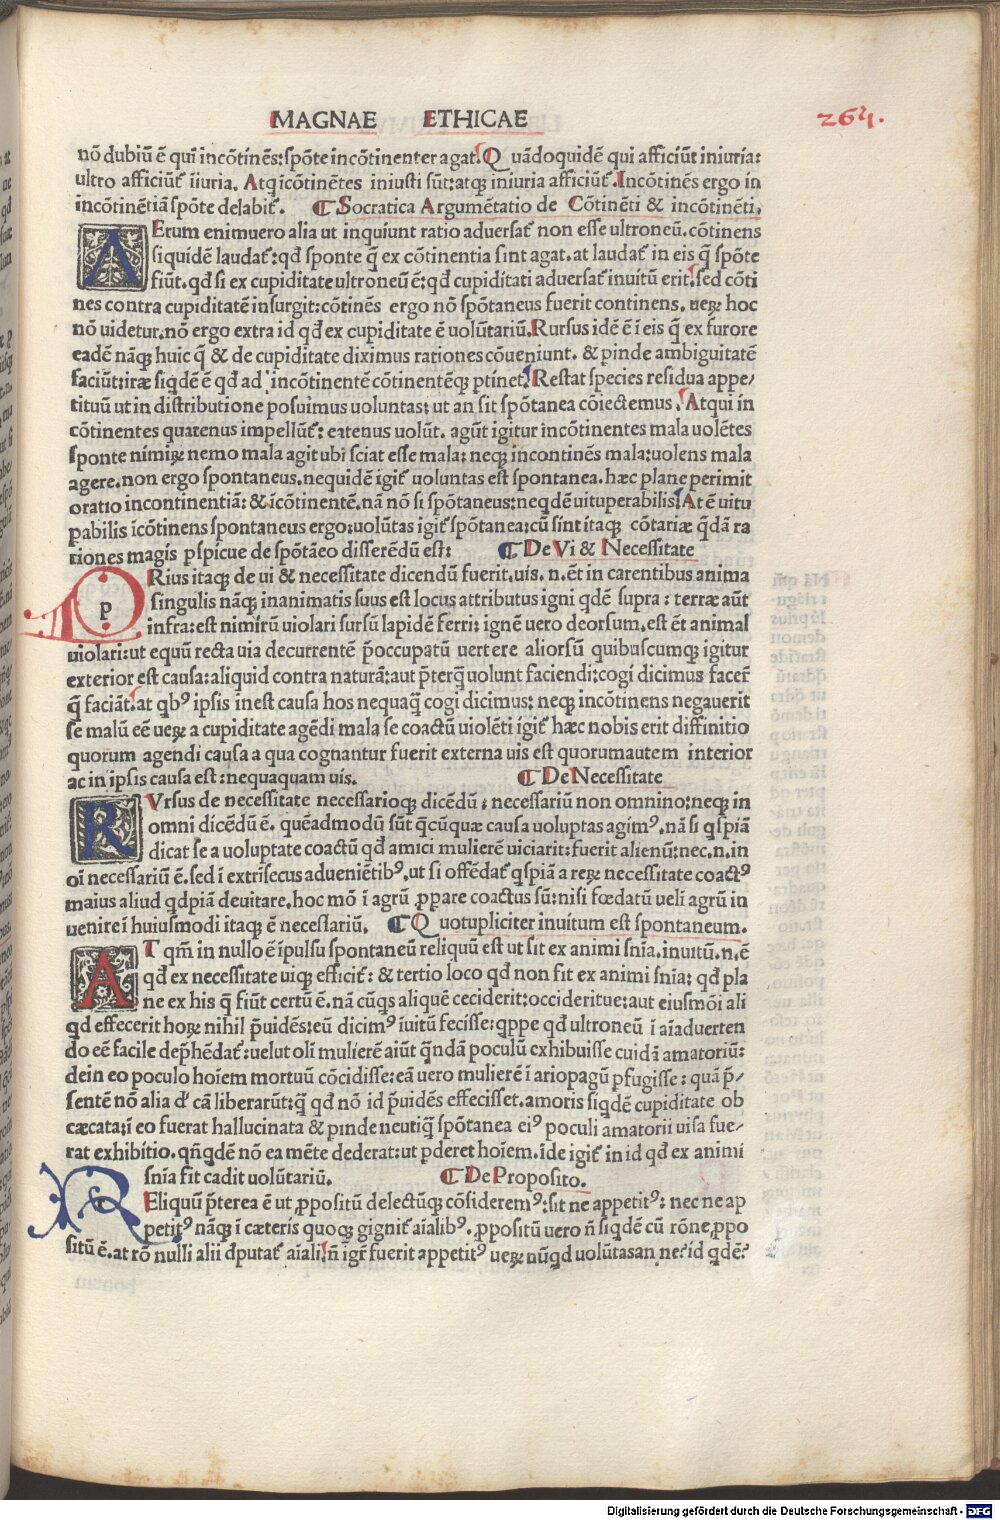 MAGNAE ETHICAE
264.
nō dubiū ē qui incōtinēs: spōte incōtinenter agat. Quādoquidē qui afficiūt iniuria:
ultro afficiūt iiuria. Atq icōtinētes iniusti sūt: atqꝫ iniuria afficiūt. Incōtinēs ergo in
incōtinētiā spōte delabit. ¶ Socratica Argumētatio de Cōtinēti & incōtinēti.
AErum enimuero alia ut inquiunt ratio aduersat non esse ultroneū. cōtinens
siquidē laudat: qđ sponte q̄ ex cōtinentia sint agat. at laudat in eis q̄ spōte
fiūt. qđ si ex cupiditate ultroneū ē: qđ cupiditati aduersat inuitū erit. sed cōti
nes contra cupiditatē insurgit: cōtinēs ergo nō spōtaneus fuerit continens. ueꝝ hoc
nō uidetur. nō ergo extra id qđ ex cupiditate ē uolūtariū. Rursus idē ē i eis q̄ ex furore
eadē nāqꝫ huic q̄ & de cupiditate diximus rationes cōueniunt. & pinde ambiguitatē
faciūt: iræ siqdē ē qđ ad incōtinentē cōtinentēqꝫ ptinet. Restat species residua appe/
tituū ut in distributione posuimus uoluntas: ut an sit spōtanea cōiectemus. Atqui in
cōtinentes quatenus impellūt: eatenus uolūt. agūt igitur incōtinentes mala uolētes
sponte nimiꝝ nemo mala agit ubi sciat esse mala: neqꝫ incontinēs mala: uolens mala
agere. non ergo spontaneus. nequidē igit uoluntas est spontanea. hæc plane perimit
oratio incontinentiā: & icōtinentē. nā nō si spōtaneus: neqdē uituperabilis. At ē uitu
pabilis icōtinens spontaneus ergo: uolūtas igit spōtanea: cū sint itaqꝫ cōtariæ qdā ra
tiones magis pspicue de spōtāeo disserēdū est: ¶ De Vi & Necessitate
PRius itaqꝫ de ui & necessitate dicendū fuerit. uis. n. ēt in carentibus anima
singulis nāqꝫ inanimatis suus est locus attributus igni qdē supra: terræ aūt
infra: est nimirū uiolari sursū lapidē ferri: ignē uero deorsum. est ēt animal
uiolari: ut equū recta uia decurrentē p̄occupatū uertere aliorsū quibuscumqꝫ igitur
exterior est causa: aliquid contra naturā: aut p̄terq̄ uolunt faciendi: cogi dicimus facer
q̄ faciāt. at qbꝰ ipsis inest causa hos nequaq̄ cogi dicimus: neqꝫ incōtinens negauerit
se malū eē ueꝝ a cupiditate agēdi mala se coactū uiolēti igit hæc nobis erit diffinitio
quorum agendi causa a qua cognantur fuerit externa uis est quorumautem interior
ac in ipsis causa est: nequaquam uis. ¶ De Necessitate
RVrsus de necessitate necessarioqꝫ dicēdū: necessariū non omnino: neqꝫ in
omni dicēdū ē. quēadmodū sūt q̄cūquæ causa uoluptas agimꝰ. nā si qspiā
dicat se a uoluptate coactū qđ amici mulierē uiciarit: fuerit alienū: nec. n. in
oi necessariū ē. sed i extrisecus adueniētibꝰ. ut si offēdat qspiā a reꝝ necessitate coactꝰ
maius aliud qdpiā deuitare. hoc mō i agrū ꝓpare coactus sū: nisi fœdatū ueli agrū in
uenire i huiusmodi itaqꝫ ē necessariū. ¶ Quotupliciter inuitum est spontaneum.
AT qm̄ in nullo ē ipulsu spontaneū reliquū est ut sit ex animi snia. inuitū. n. ē
qđ ex necessitate uiqꝫ efficit: & tertio loco qđ non fit ex animi snia: qđ pla
ne ex his q̄ fiūt certū ē. nā cūqs aliquē ceciderit: occideritue: aut eiusmōi ali
qđ effecerit hoꝝ nihil p̄uidēs: eū dicimꝰ iuitū fecisse: qppe qđ ultroneū i aiaduerten
do eē facile dep̄hēdat: uelut oli mulierē aiūt q̄ndā poculū exhibuisse cuidā amatoriū:
dein eo poculo hoiem mortuū cōcidisse: eā uero mulierē i ariopagū pfugisse: quā p̄/
sentē nō alia d' cā liberarūt: q̄ qđ nō id p̄uidēs effecisset. amoris siqdē cupiditate ob
cæcata: i eo fuerat hallucinata & pinde neutiq̄ spōtanea eiꝰ poculi amatorii uisa fue/
rat exhibitio. qn̄qdē nō ea mēte dederat: ut pderet hoiem. ide igit in id qđ ex animi
snia fit cadit uolūtariū. ¶ De Proposito.
REliquū p̄terea ē ut ꝓpositū delectūqꝫ cōsideremꝰ: sit ne appetitꝰ: nec ne ap
petitꝰ nāqꝫ i cæteris quoqꝫ gignit aialibꝰ. ꝓpositū uero n̄ siqdē cū rōne. ꝓpo
sitū ē. at rō nulli alii d̄putat aiali. n̄ igr fuerit appetitꝰ ueꝝ nūqd uolūtasan ne? id qdē?